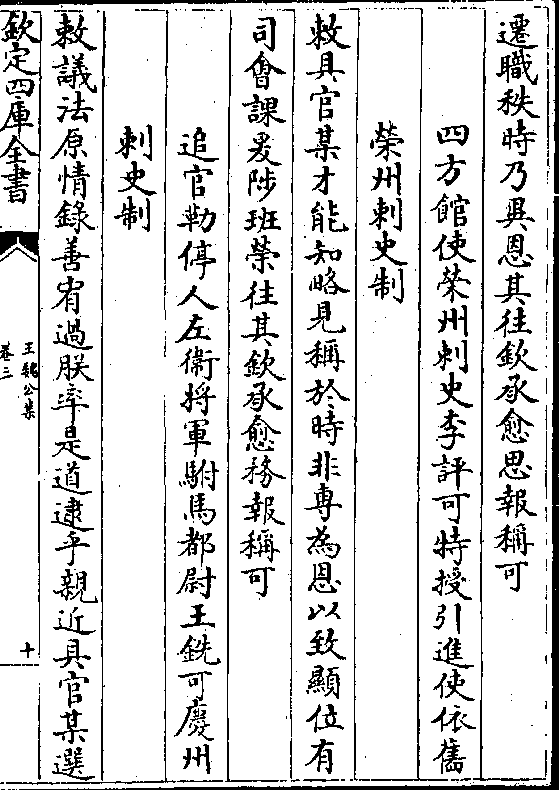 遷職秩時乃異恩其往欽承愈思報稱可
四方館使榮州刺史李評可特授引進使依舊
榮州刺史制
敕具官某才能知略見稱於時非專為恩以致顯位有
司會課爰陟班榮往其欽承愈務報稱可
追官勒停人左衞將軍駙馬都尉王銑可慶州
刺史制
敕議法原情錄善宥過朕率是道逮乎親近具官某選
欽定四庫全書
王魏公集
卷三
十